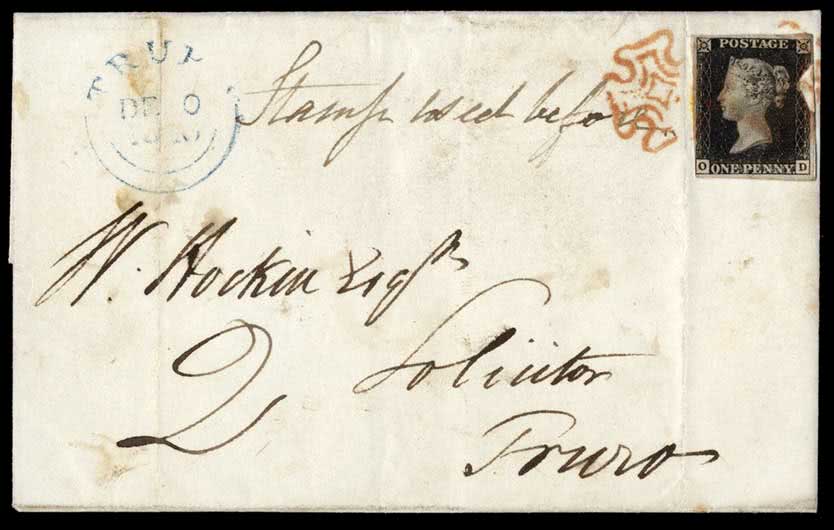 TRU
DE 0
Stamp used before
POSTAGE
O ONE PENNY D
W. Hockin Esqr
2
Solicitor
Truro